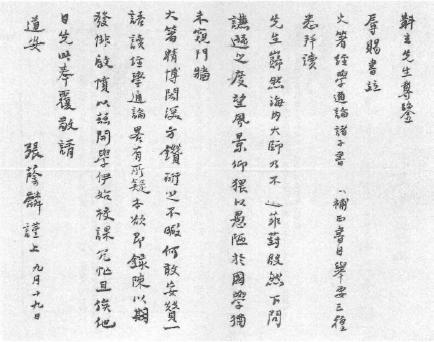 斠玄先生尊鑒
辱賜書並
大著經學通論諸子書 補正書目舉要三種
悉拜讀
先生巋然海內大師乃不 菲葑殷然下問
謙遜之度望風景仰猥以愚陋於國學猶
未窺門牆
大著精博閎深方鑽研之不暇何敢妄贊一
語讀經學通論畧有所疑本欲即錄陳以期
發俳啟憤以茲開學伊始校課冗忙且俟他
日先此奉覆敬請
道安 張蔭麟謹上 九月十九日